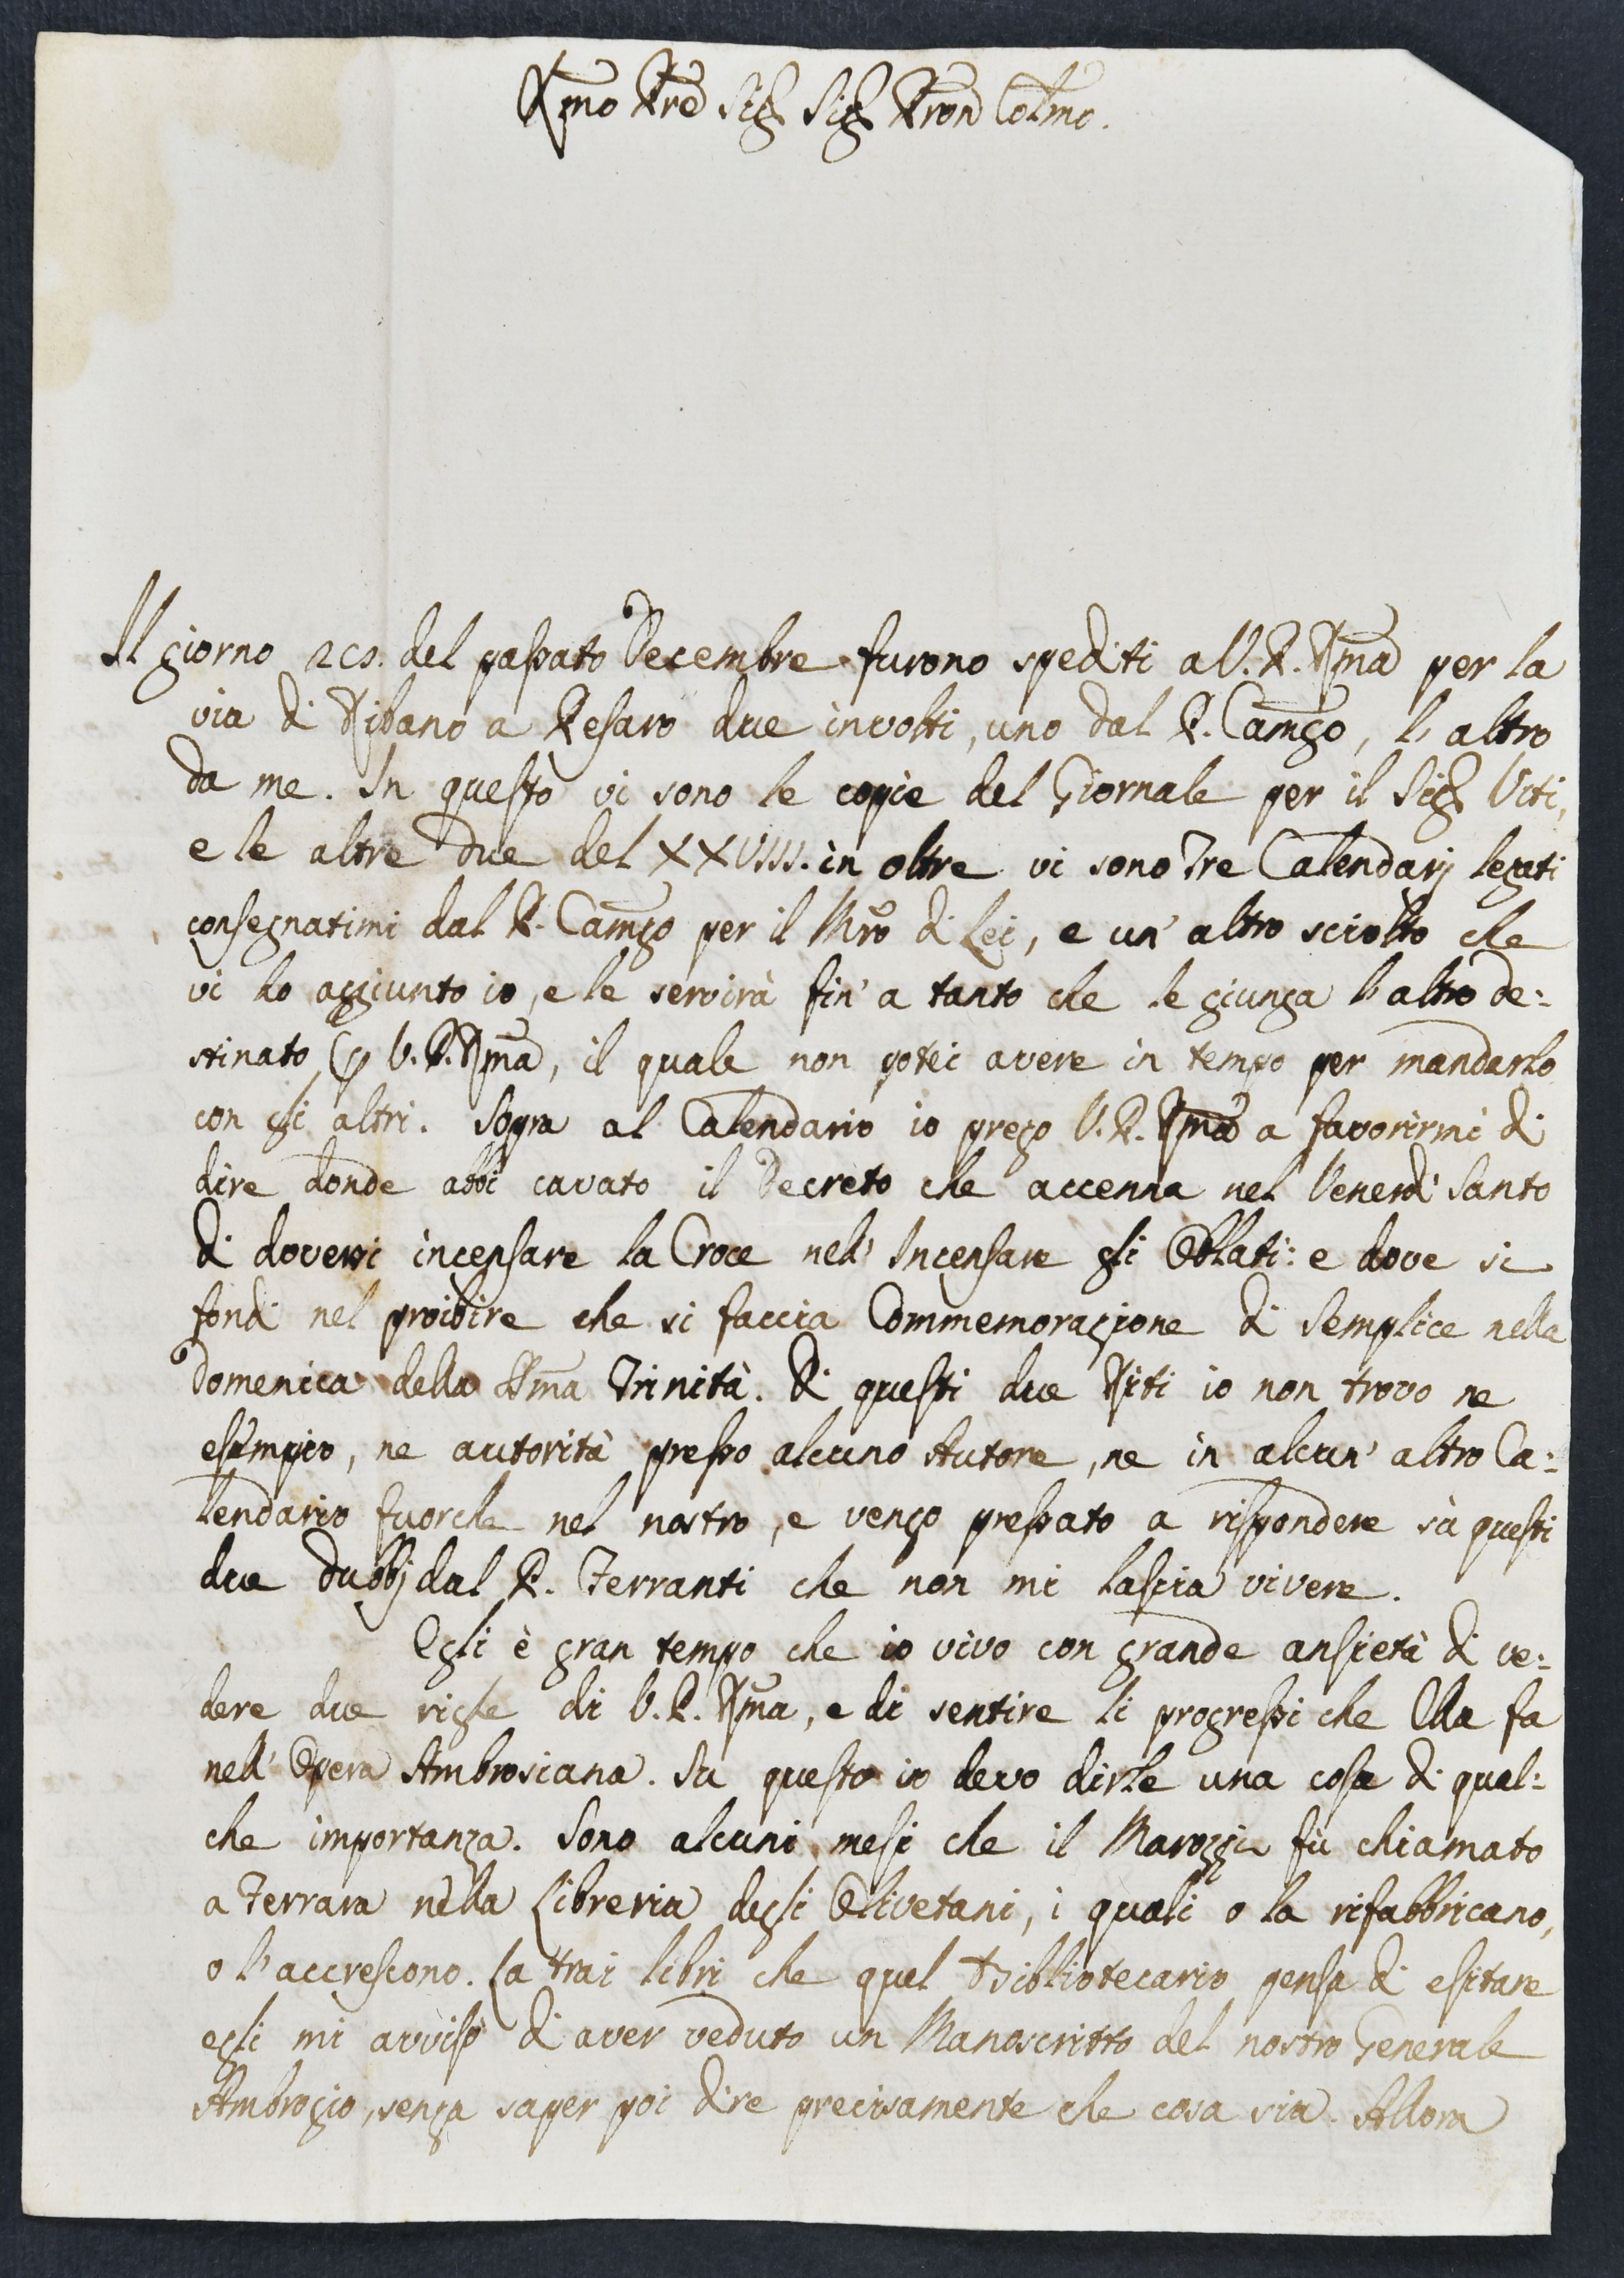 Rmo Pre Sig Sig Pron Colmo.
Il giorno 29. del passato Decembre furono spediti a V. P. Rma per la
via di Ribano a Pesaro due involti, uno dal P. Camgo, l'altro
da me. In questo vi sono le copie del Giornale per il Sig Viti,
e le altre due del XXVIII. in oltre vi sono Tre Calendarj legati
consegnatimi dal P. Camgo per il Mro di Lei, e un' altro sciolto che
vi ho aggiunto io, e le servirà fin' a tanto che le giunga l'altro de:
stinato V. P. Rma, il quale non potei avere in tempo per mandarlo
con gli altri. Sopra al Calendario io prego V. P. Rma a favorirmi di
dire donde abbi cavato il Decreto che accenna nel Venerdì Santo
di doversi incensare la Croce nell' Incensare gli Oblati: e dove si
fondi nel proibire che si faccia Commemorazione di Semplice nella
Domenica della SSma Trinità. Di questi due Riti io non trovo ne
esempio, ne autorità presso alcuno Autore, ne in alcun' altro Ca:
lendario fuorche nel nostro, e vengo pressato a rispondere sù questi
due dubbj dal P. Ferranti che non mi lascia vivere.
Egli è gran tempo che io vivo con grande ansietà di ve:
dere due righe di V. P. Rma, e di sentire li progressi che Ella fa
nell' Opera Ambrosiana. Su questo io devo dirle una cosa di qual:
che importanza. Sono alcuni mesi che il Marozzi fù chiamato
a Ferrara nella Libreria degli Olivetani, i quali o la rifabbricano,
o l'accrescono. La trai libri che quel Bibliotecario pensa di esitare
egli mi avvisò di aver veduto un Manoscritto del nostro Generale
Ambrogio, senza saper poi dire precisamente che cosa sia. Allora